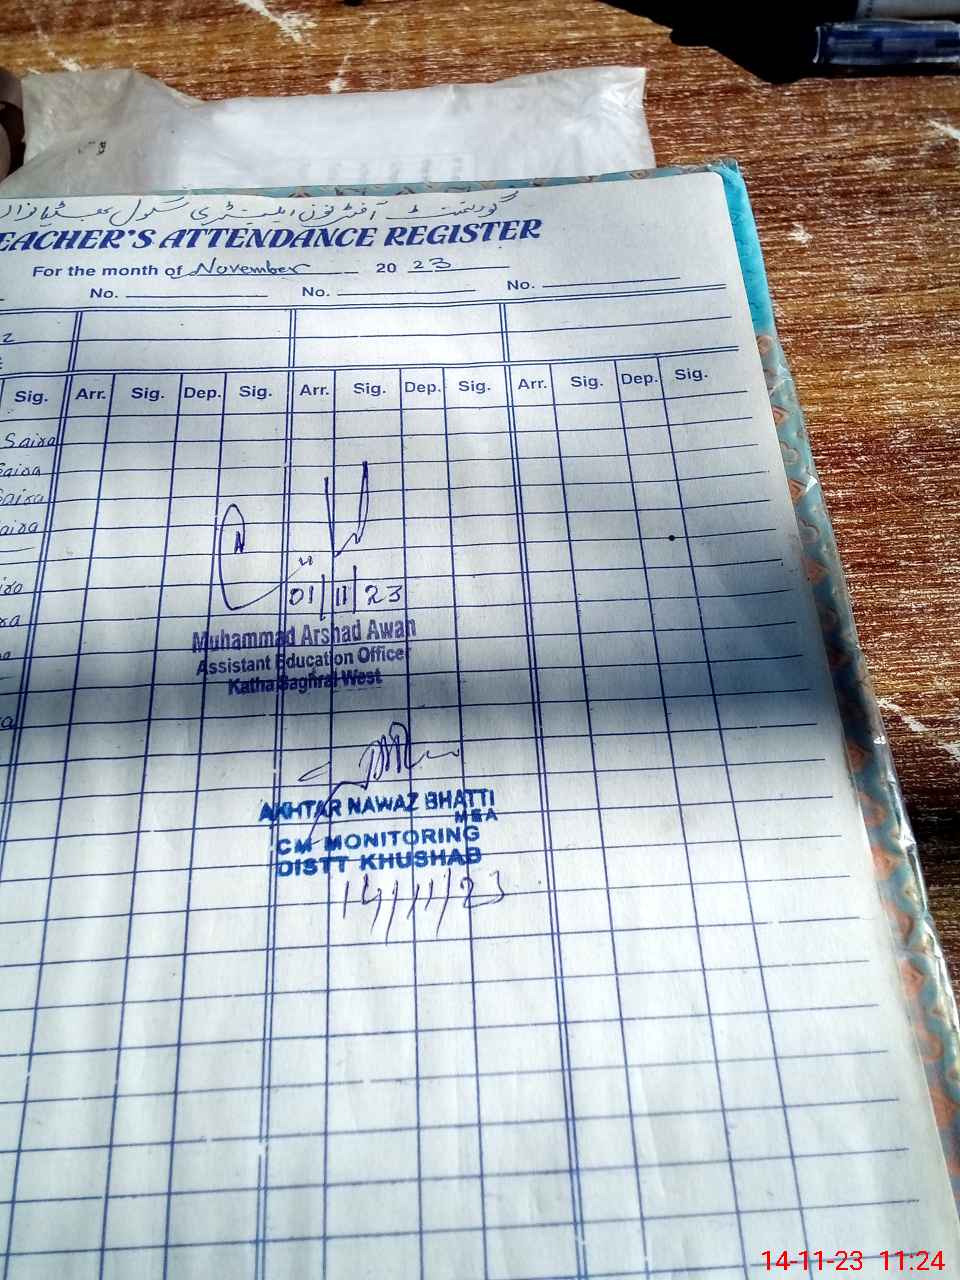 گورنمنٹ آفٹرنون ایلیمنٹری سکول
EACHER'S ATTENDANCE REGISTER
For the month of November 2023
No. No. No.
Sig. Arr. Sig. Dep. Sig. Arr. Sig. Dep. Sig. Arr. Sig. Dep. Sig.
Saira
Saira
Saira
aira
ira
ra
a
01/11/23
Muhammad Arshad Awan
Assistant Education Officer
Katha Saghral West
AKHTAR NAWAZ BHATTI
MEA
CM MONITORING
DISTT KHUSHAB
14/11/23
14-11-23 11:24